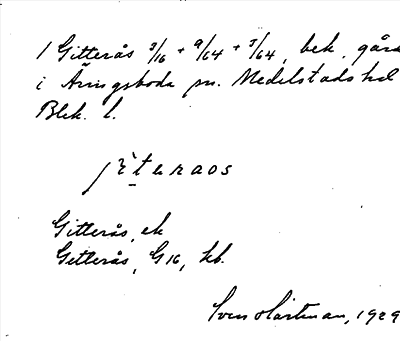 1 Gitterås 3/16 + 9/64 + 5/64, bek. gård
i Åringsboda sn. Medelstads hd
Blek. l.
jìteraos
Gitterås, ek
Getterås, G16, kb.
Sven Hartman, 1929